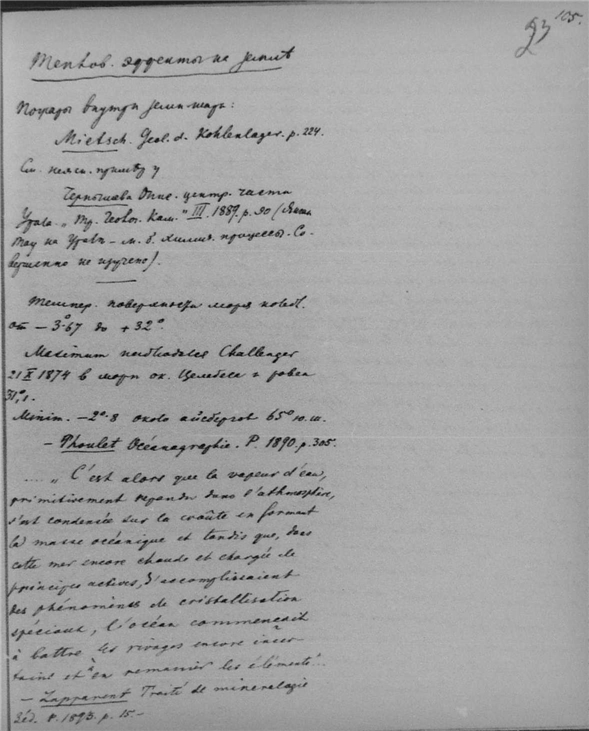 105.
23
Теплов. эффекты на земле
Пожары внутри земн. шара:
Mietsch. Geol. d. Kohlenlager. p. 224.
См. неясн. пример у
Чернышева Опис. центр. части
Урала. „Тр. Геолог. Ком.“ III. 1889. p. 90 (
на Урале – м. б. химич. процессы. Со-
вершенно не изучено).
Темпер. поверхности моря колебл.
от – 3°67 до + 32°.
Maximum Challenger
21 X 1874 в море ок. Целебеса и равен
31°,1.
Minim. – 2°.8 около айсбергов 65° ю. ш.
– Thoulet Océanographie. P. 1890. p. 305.
.... „C'est alors que la vapeur d'eau,
primitivement répandue dans l'athmosphère,
s'est condensée sur la croûte en formant
la masse océanique et tandis que, dans
cette mer encore chaude et chargée de
principes actives, s'accomplissaient
des phénomènes de cristallisation
spéciaux, l'océan commençait
à battre les rivages encore incer-
tains et à en remanier les éléments...
– Lapparent Traité de mineralogie
2éd. P. 1893. p. 15. –